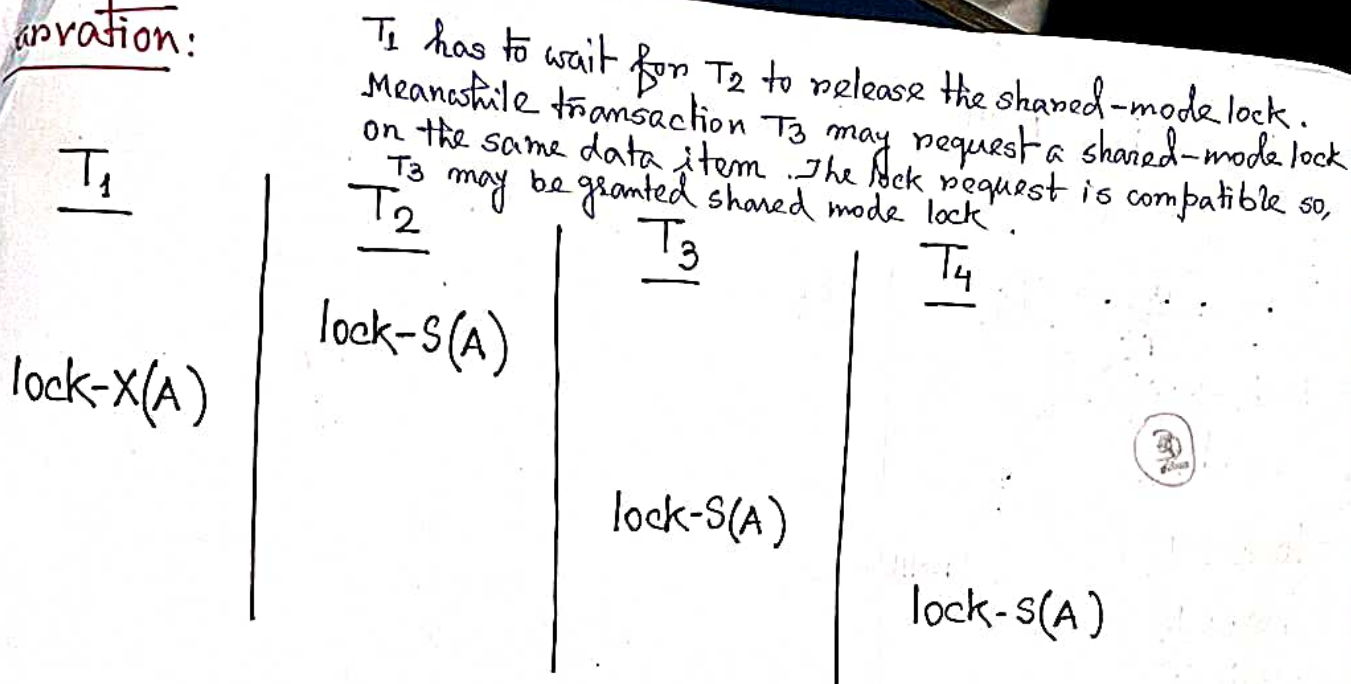 arvation:
T1 has to wait for T2 to release the shared-mode lock.
Meanwhile transaction T3 may request a shared-mode lock
on the same data item. The lock request is compatible so,
T3 may be granted shared mode lock.
T1
T2
T3
T4
lock-S(A)
lock-X(A)
lock-S(A)
lock-S(A)